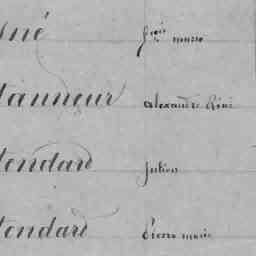 sné fçois
mosso
Tanneur alexandre René
tendard julien
tendard Pierre marie